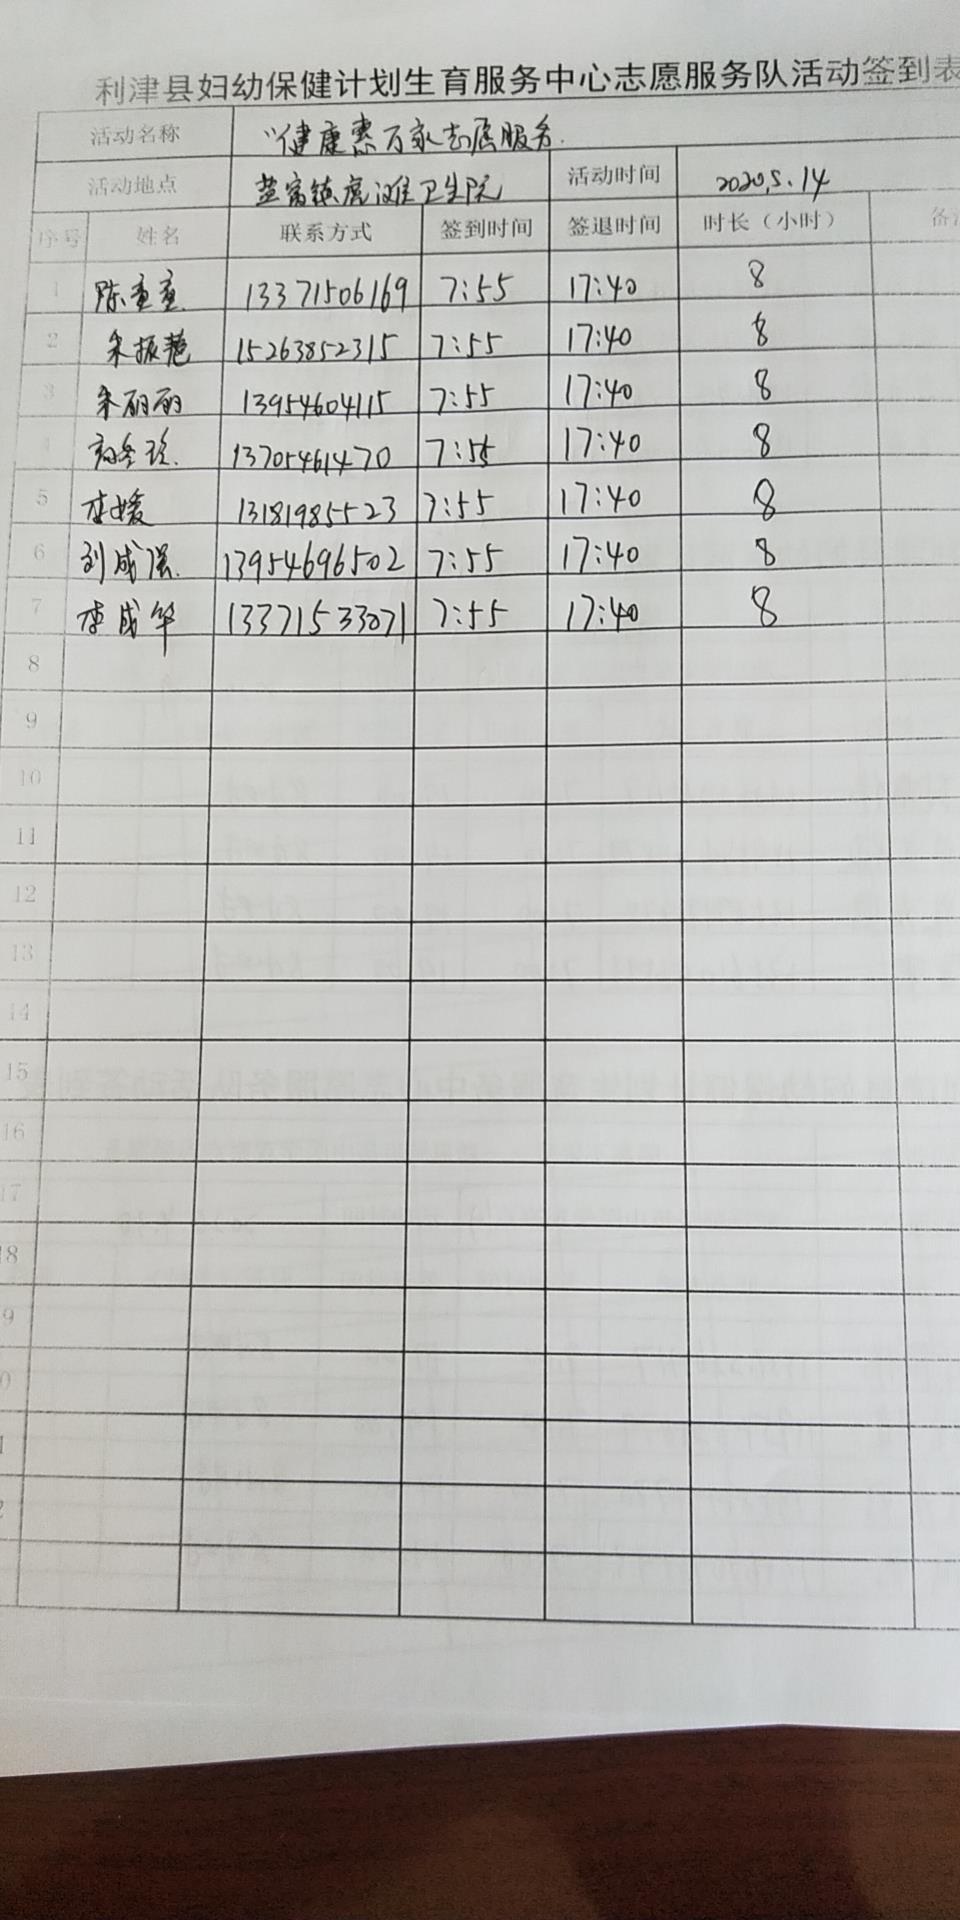 利津县妇幼保健计划生育服务中心志愿服务队活动签到表
活动名称 "健康惠万家志愿服务.
活动地点 盐窝镇虎滩卫生院 活动时间 2020.5.14
序号 姓名 联系方式 签到时间 签退时间 时长（小时） 备
1 陈重重 13371506169 7:55 17:40 8
2 朱振艳 15263852315 7:55 17:40 8
3 朱丽丽 13954604115 7:55 17:40 8
4 13705461470 7:55 17:40 8
5 李媛 13181985523 7:55 17:40 8
6 刘成强 13954696502 7:55 17:40 8
7 李成华 13371533071 7:55 17:40 8
8
9
10
11
12
13
14
15
16
17
18
9
0
1
2